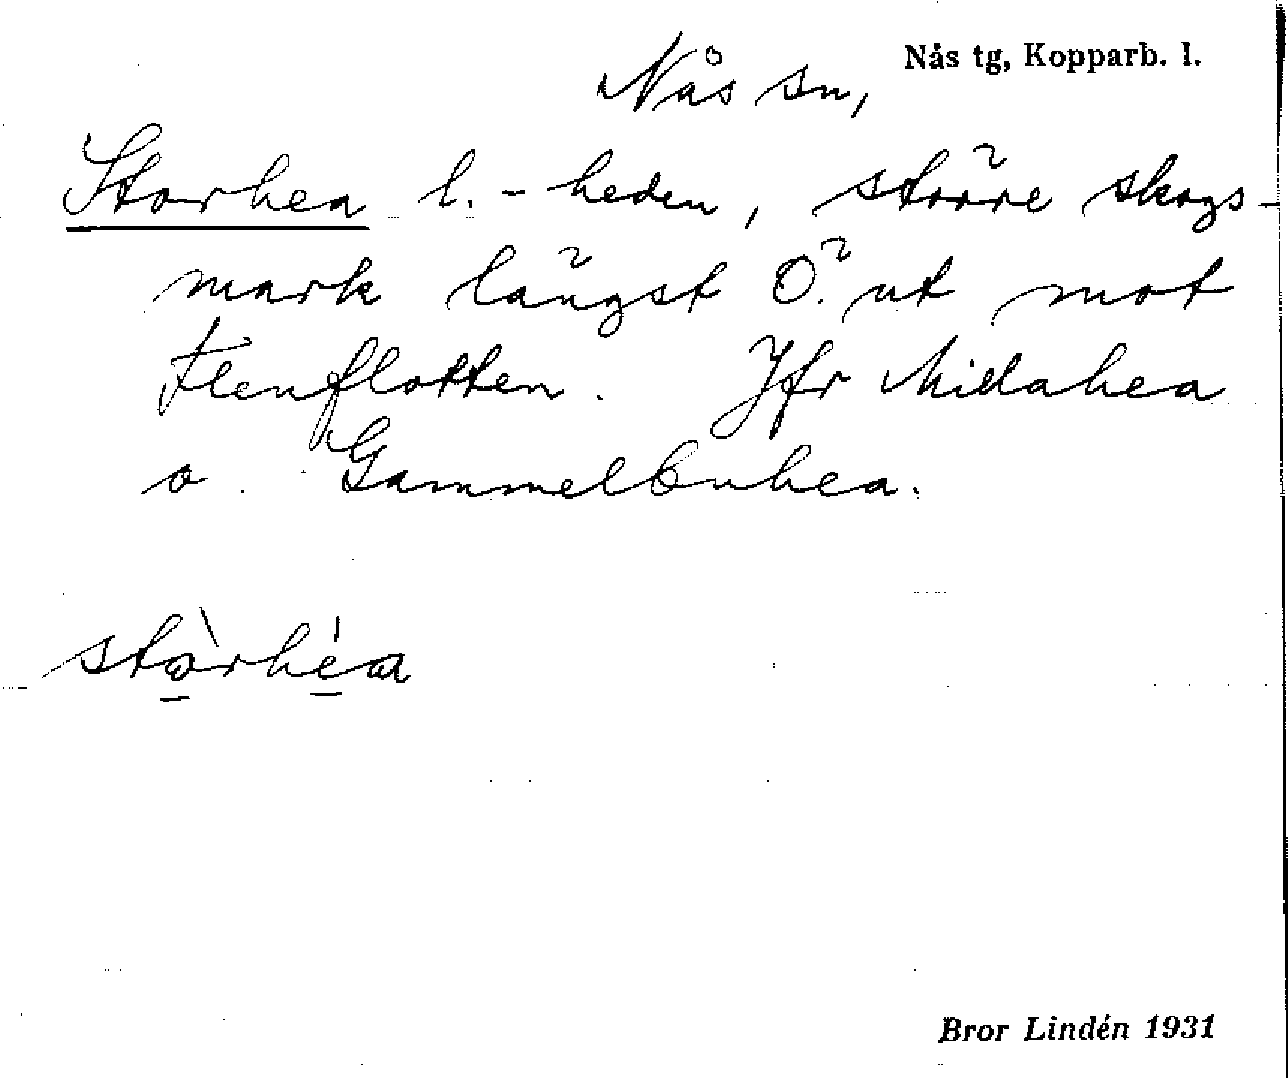 Nås tg, Kopparb. l.
Nås sn,
Storhea l. -heden, större skogs-
mark längst Ö. ut mot
Flenflotten. Jfr Midahea
o. Gammelbuhea.
stòrhéa
Bror Lindén 1931